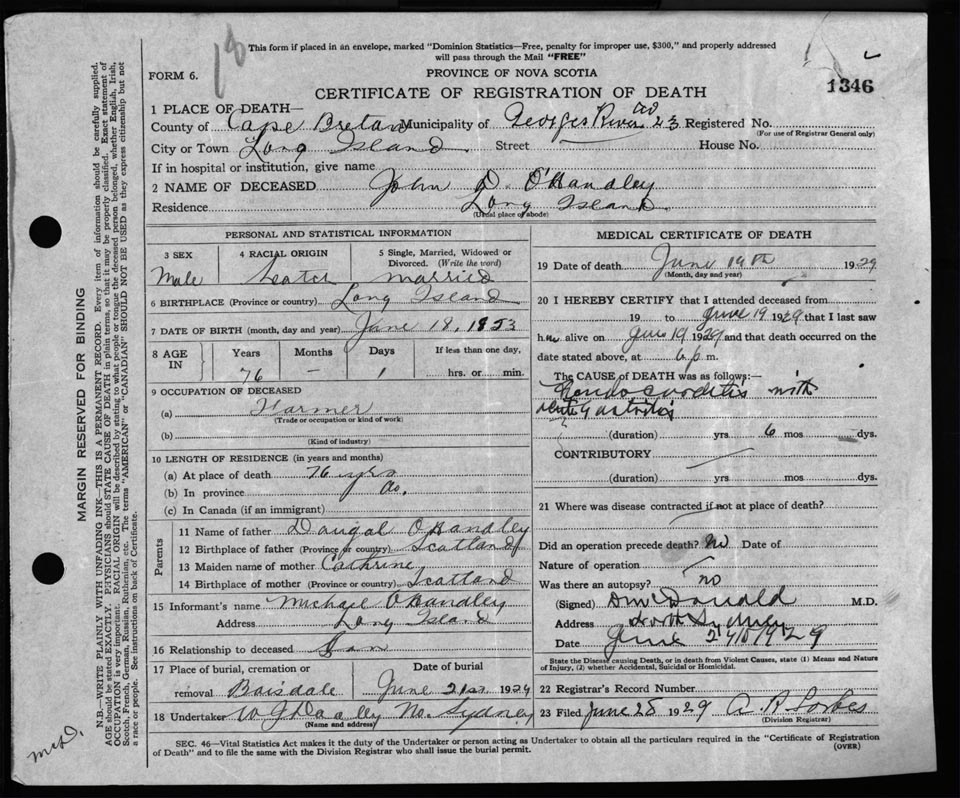 18
This form if placed in an envelope, marked "Dominion Statistics—Free, penalty for improper use, $300," and properly addressed
will pass through the Mail "FREE"
FORM 6.
PROVINCE OF NOVA SCOTIA
1346
CERTIFICATE OF REGISTRATION OF DEATH
1 PLACE OF DEATH—
County of Cape Breton Municipality of Georges River 23 Registered No.
(For use of Registrar General only)
City or Town Long Island Street House No.
If in hospital or institution, give name
2 NAME OF DECEASED John D. O'Handley
Residence Long Island
(Usual place of abode)
PERSONAL AND STATISTICAL INFORMATION
3 SEX 4 RACIAL ORIGIN 5 Single, Married, Widowed or
Divorced. (Write the word)
Male Scotch married
6 BIRTHPLACE (Province or country) Long Island
7 DATE OF BIRTH (month, day and year) June 18, 1853
8 AGE IN Years Months Days If less than one day,
76 – 1 hrs. or min.
9 OCCUPATION OF DECEASED
(a) Farmer
(Trade or occupation or kind of work)
(b)
(Kind of industry)
10 LENGTH OF RESIDENCE (in years and months)
(a) At place of death 76 yrs
(b) In province do.
(c) In Canada (if an immigrant)
Parents
11 Name of father Dougal O'Handley
12 Birthplace of father (Province or country) Scotland
13 Maiden name of mother Cathrine
14 Birthplace of mother (Province or country) Scotland
15 Informant's name Michael O'Handley
Address Long Island
16 Relationship to deceased Son
17 Place of burial, cremation or Date of burial
removal Boisdale June 21st 1929
18 Undertaker W J Dooley No. Sydney
(Name and address)
MEDICAL CERTIFICATE OF DEATH
19 Date of death June 19th 1929
(Month, day and year)
20 I HEREBY CERTIFY that I attended deceased from
19 to June 19 1929 that I last saw
him alive on June 19 1929 and that death occurred on the
date stated above, at 6 p. m.
The CAUSE OF DEATH was as follows:—
with
(duration) yrs 6 mos dys.
CONTRIBUTORY
(duration) yrs mos dys.
21 Where was disease contracted if not at place of death?
Did an operation precede death? No Date of
Nature of operation
Was there an autopsy? no
(Signed) D McDonald M.D.
Address North Sydney
Date June 24 1929
State the Disease causing Death, or in death from Violent Causes, state (1) Means and Nature
of Injury, (2) whether Accidental, Suicidal or Homicidal.
22 Registrar's Record Number
23 Filed June 25 1929 A. R. Forbes
(Division Registrar)
SEC. 46—Vital Statistics Act makes it the duty of the Undertaker or person acting as Undertaker to obtain all the particulars required in the "Certificate of Registration
of Death" and to file the same with the Division Registrar who shall issue the burial permit.
(OVER)
MARGIN RESERVED FOR BINDING
N.B.—WRITE PLAINLY WITH UNFADING INK—THIS IS A PERMANENT RECORD. Every item of information should be carefully supplied.
AGE should be stated EXACTLY. PHYSICIANS should STATE CAUSE OF DEATH in plain terms, so that it may be properly classified. Exact statement of
OCCUPATION is very important. RACIAL ORIGIN will be described by stating to what people or tongue the deceased person belonged, whether English, Irish,
Scotch, French, German, Russian, Ruthenian, etc. The terms "AMERICAN" or "CANADIAN" SHOULD NOT BE USED as they express citizenship but not
a race or people. See instructions on back of Certificate.